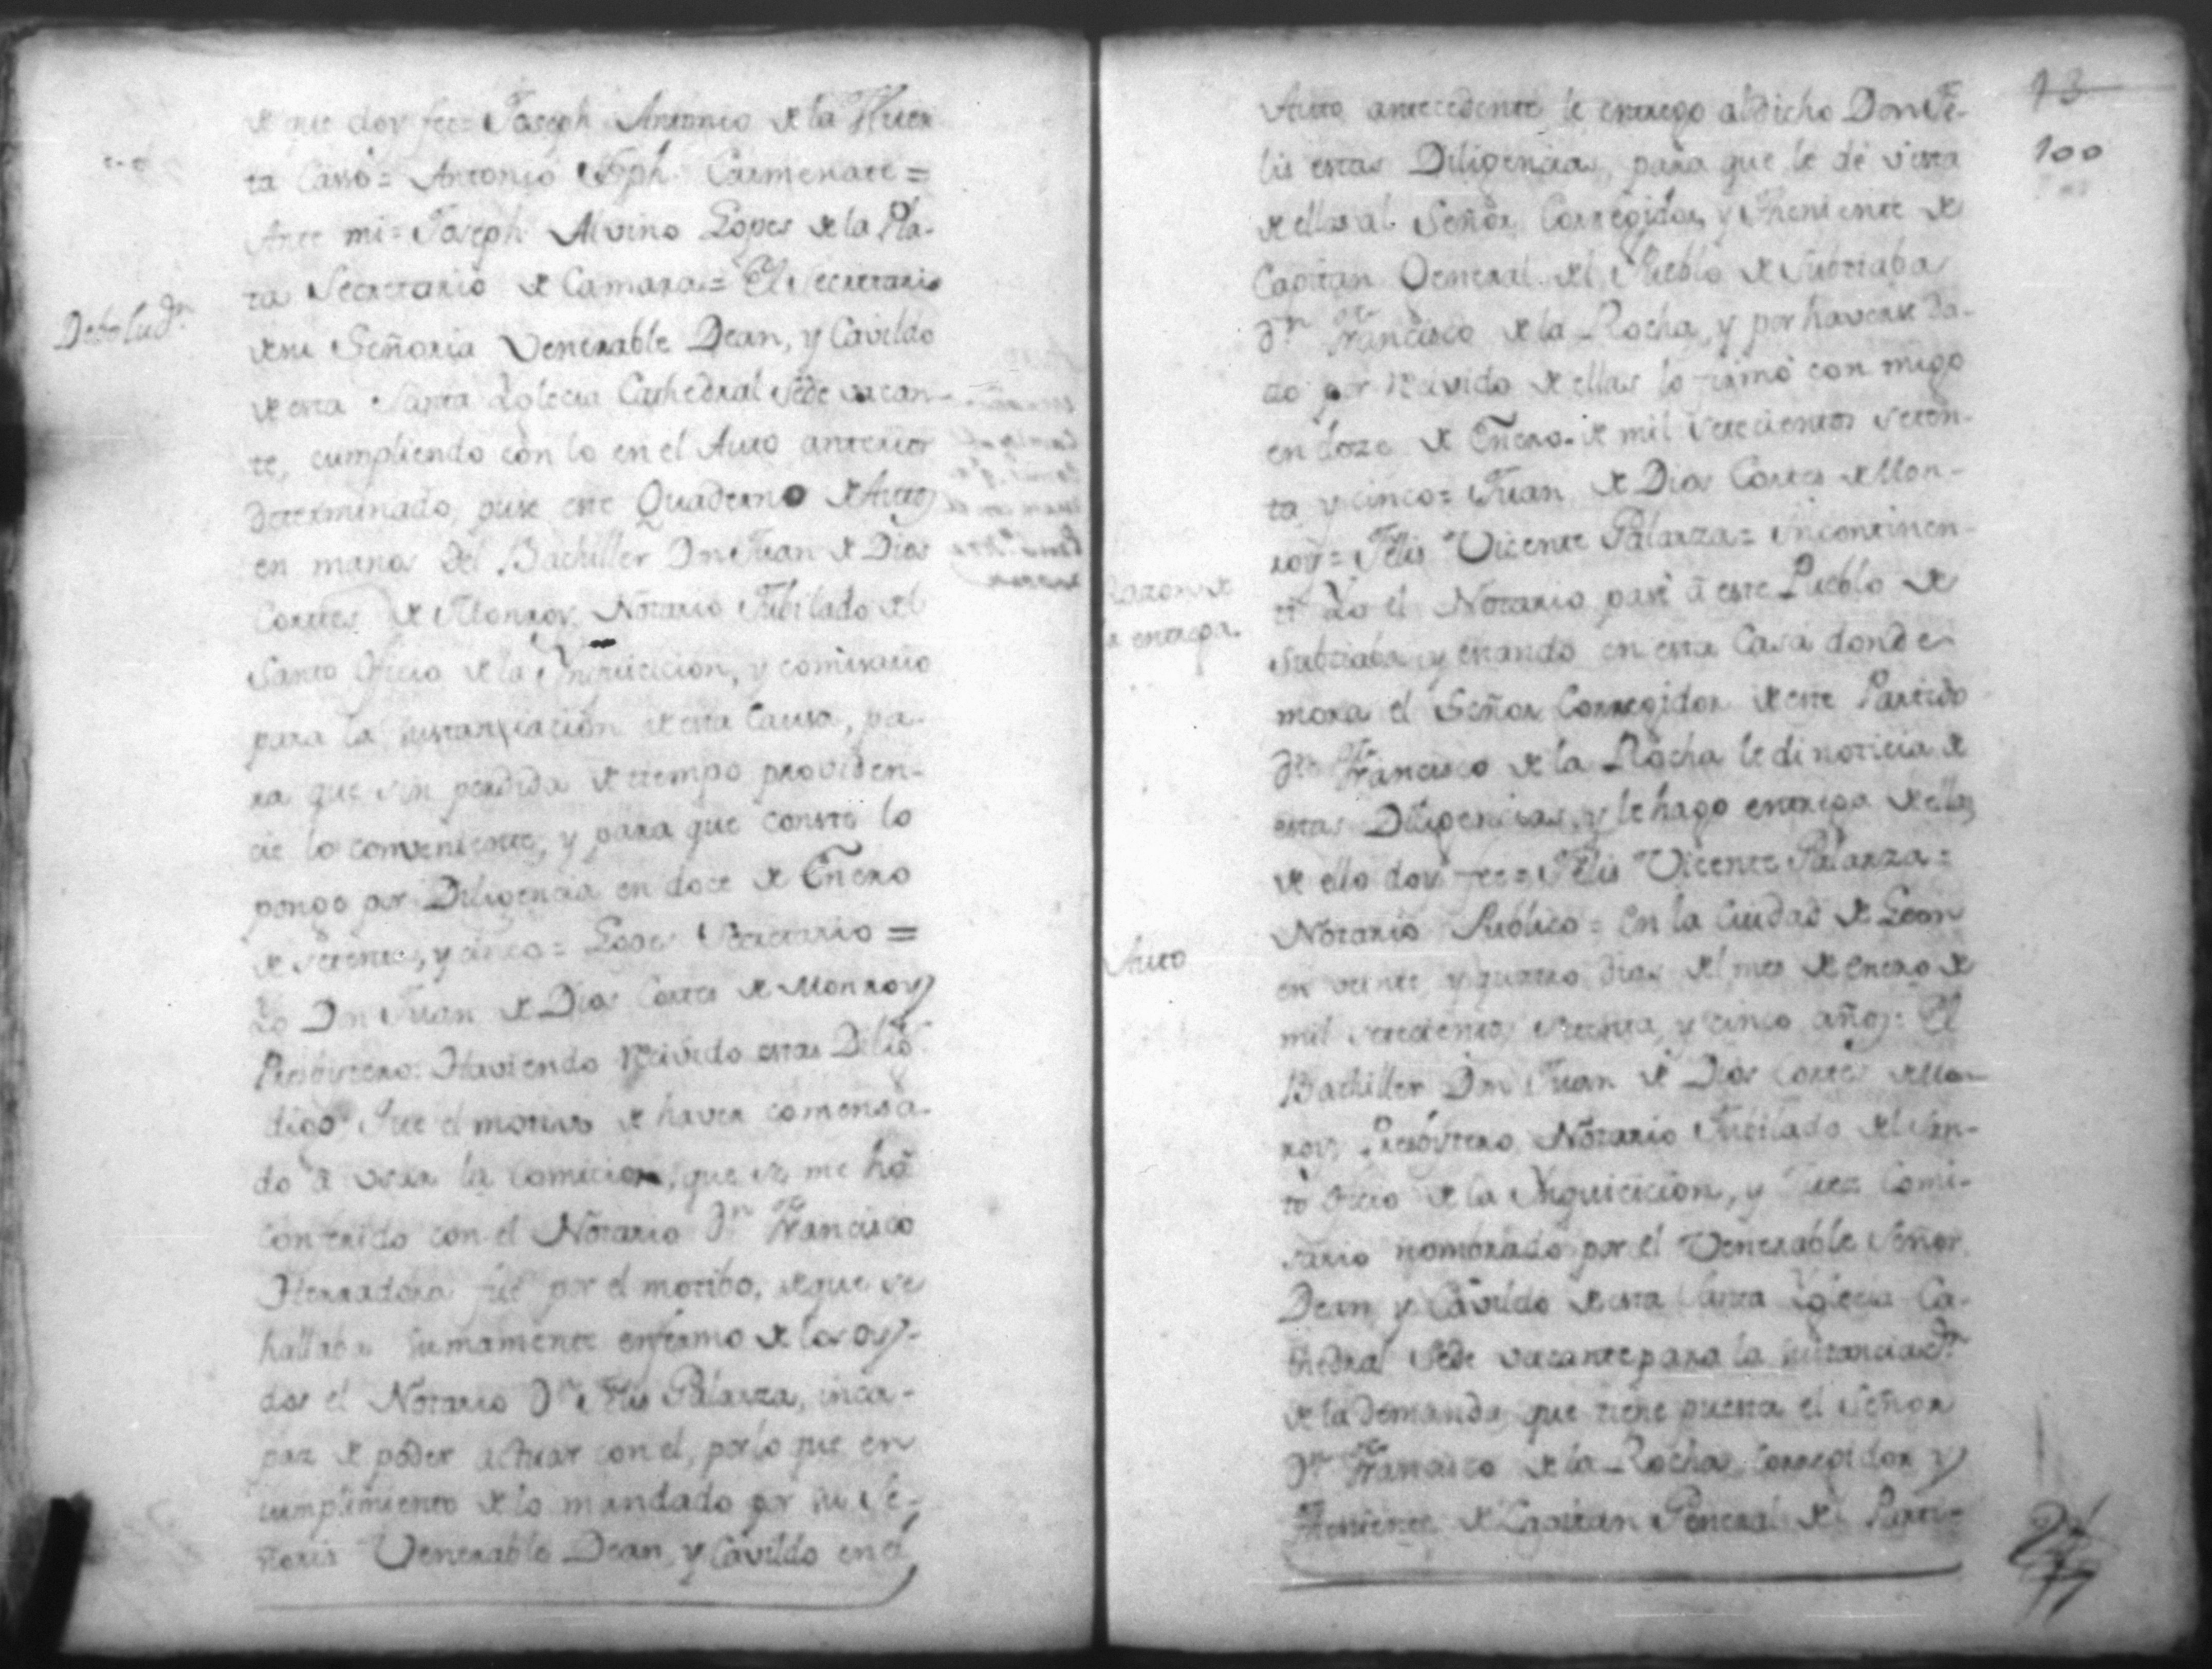 de que doy fee= Joseph Antonio de la Huer
ta Casso= Antonio Jph. Carmenate=
Ante mi= Joseph Alvino Lopes de la Pla-
ta Secretario de Camara= El Secretario
Debolud.n
de su Señoria Venerable Dean, y Cavildo
de esta Santa Yglecia Cathedral Sede vacan-
te, cumpliendo con lo en el Auto anterior
determinado, puse este Quaderno de Autos
en manos del Bachiller Dn Juan de Dios
Cortes de Monroy, Notario Jubilado del
Santo Oficio de la Ynquicicion, y comisario
para la sustanciacion de esta Causa, pa-
ra que sin perdida de tiempo providen-
cie lo comveniente, y para que conste lo
pongo por Diligencia en doce de Enero
de setenta, y cinco= Lopes Secretario=
Yo Dn Juan de Dios Cortes de Monroy
Presbytero: Haviendo recivido estas Dilig.s
digo: Que el motivo de haver comensa-
do â usar la comicion, que se me hâ
conferido con el Notario Dn Francisco
Herradora fue por el motibo, de que se
hallaba sumamente enfermo de los oy-
dos el Notario Dn Felis Palarza, inca-
paz de poder actuar con el, por lo que en
cumplimiento de lo mandado por su Se-
ñoria Venerable Dean, y Cavildo en el
13
100
Auto antecedente le entrego al dicho Don Fe-
lis estas Diligencias, para que le dé vista
de ellas al Señor Corregidor, y Theniente de
Capitan General del Pueblo de Subtiaba
Dn Francisco de la Rocha, y por haverse da-
do por recivido de ellas lo firmó con migo
en doze de Enero de mil setecientos seten-
ta y cinco= Juan de Dios Cortes de Mon-
roy= Felis Vicente Palarza= Yncontinen-
Razon de
la entrega.
ti Yo el Notario pasé â este Pueblo de
Subtiaba y estando en esta Casa donde
mora el Señor Corregidor de este Partido
Dn Francisco de la Rocha le di noticia de
estas Diligencias, y le hago entrega de ellas
de ello doy fee= Felis Vicente Palarza=
Auto
Notario Publico= En la Ciudad de Leon
en veinte y quatro dias del mes de Enero de
mil setecientos setenta, y cinco años: El
Bachiller Dn Juan de Dios Cortes de Mon-
roy, Presbytero, Notario Jubilado del San-
to Oficio de la Ynquicicion, y Juez Comi-
sario nombrado por el Venerable Señor
Dean y Cavildo de esta Santa Yglecia Ca-
thedral Sede vacante para la sustanciac.n
de la demanda que tiene puesta el Señor
Dn Francisco de la Rocha, Corregidor y
Theniente de Capitan General del Parti-